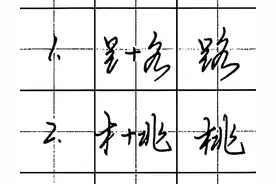 1. ⻊+各 路
2. 木+兆 桃